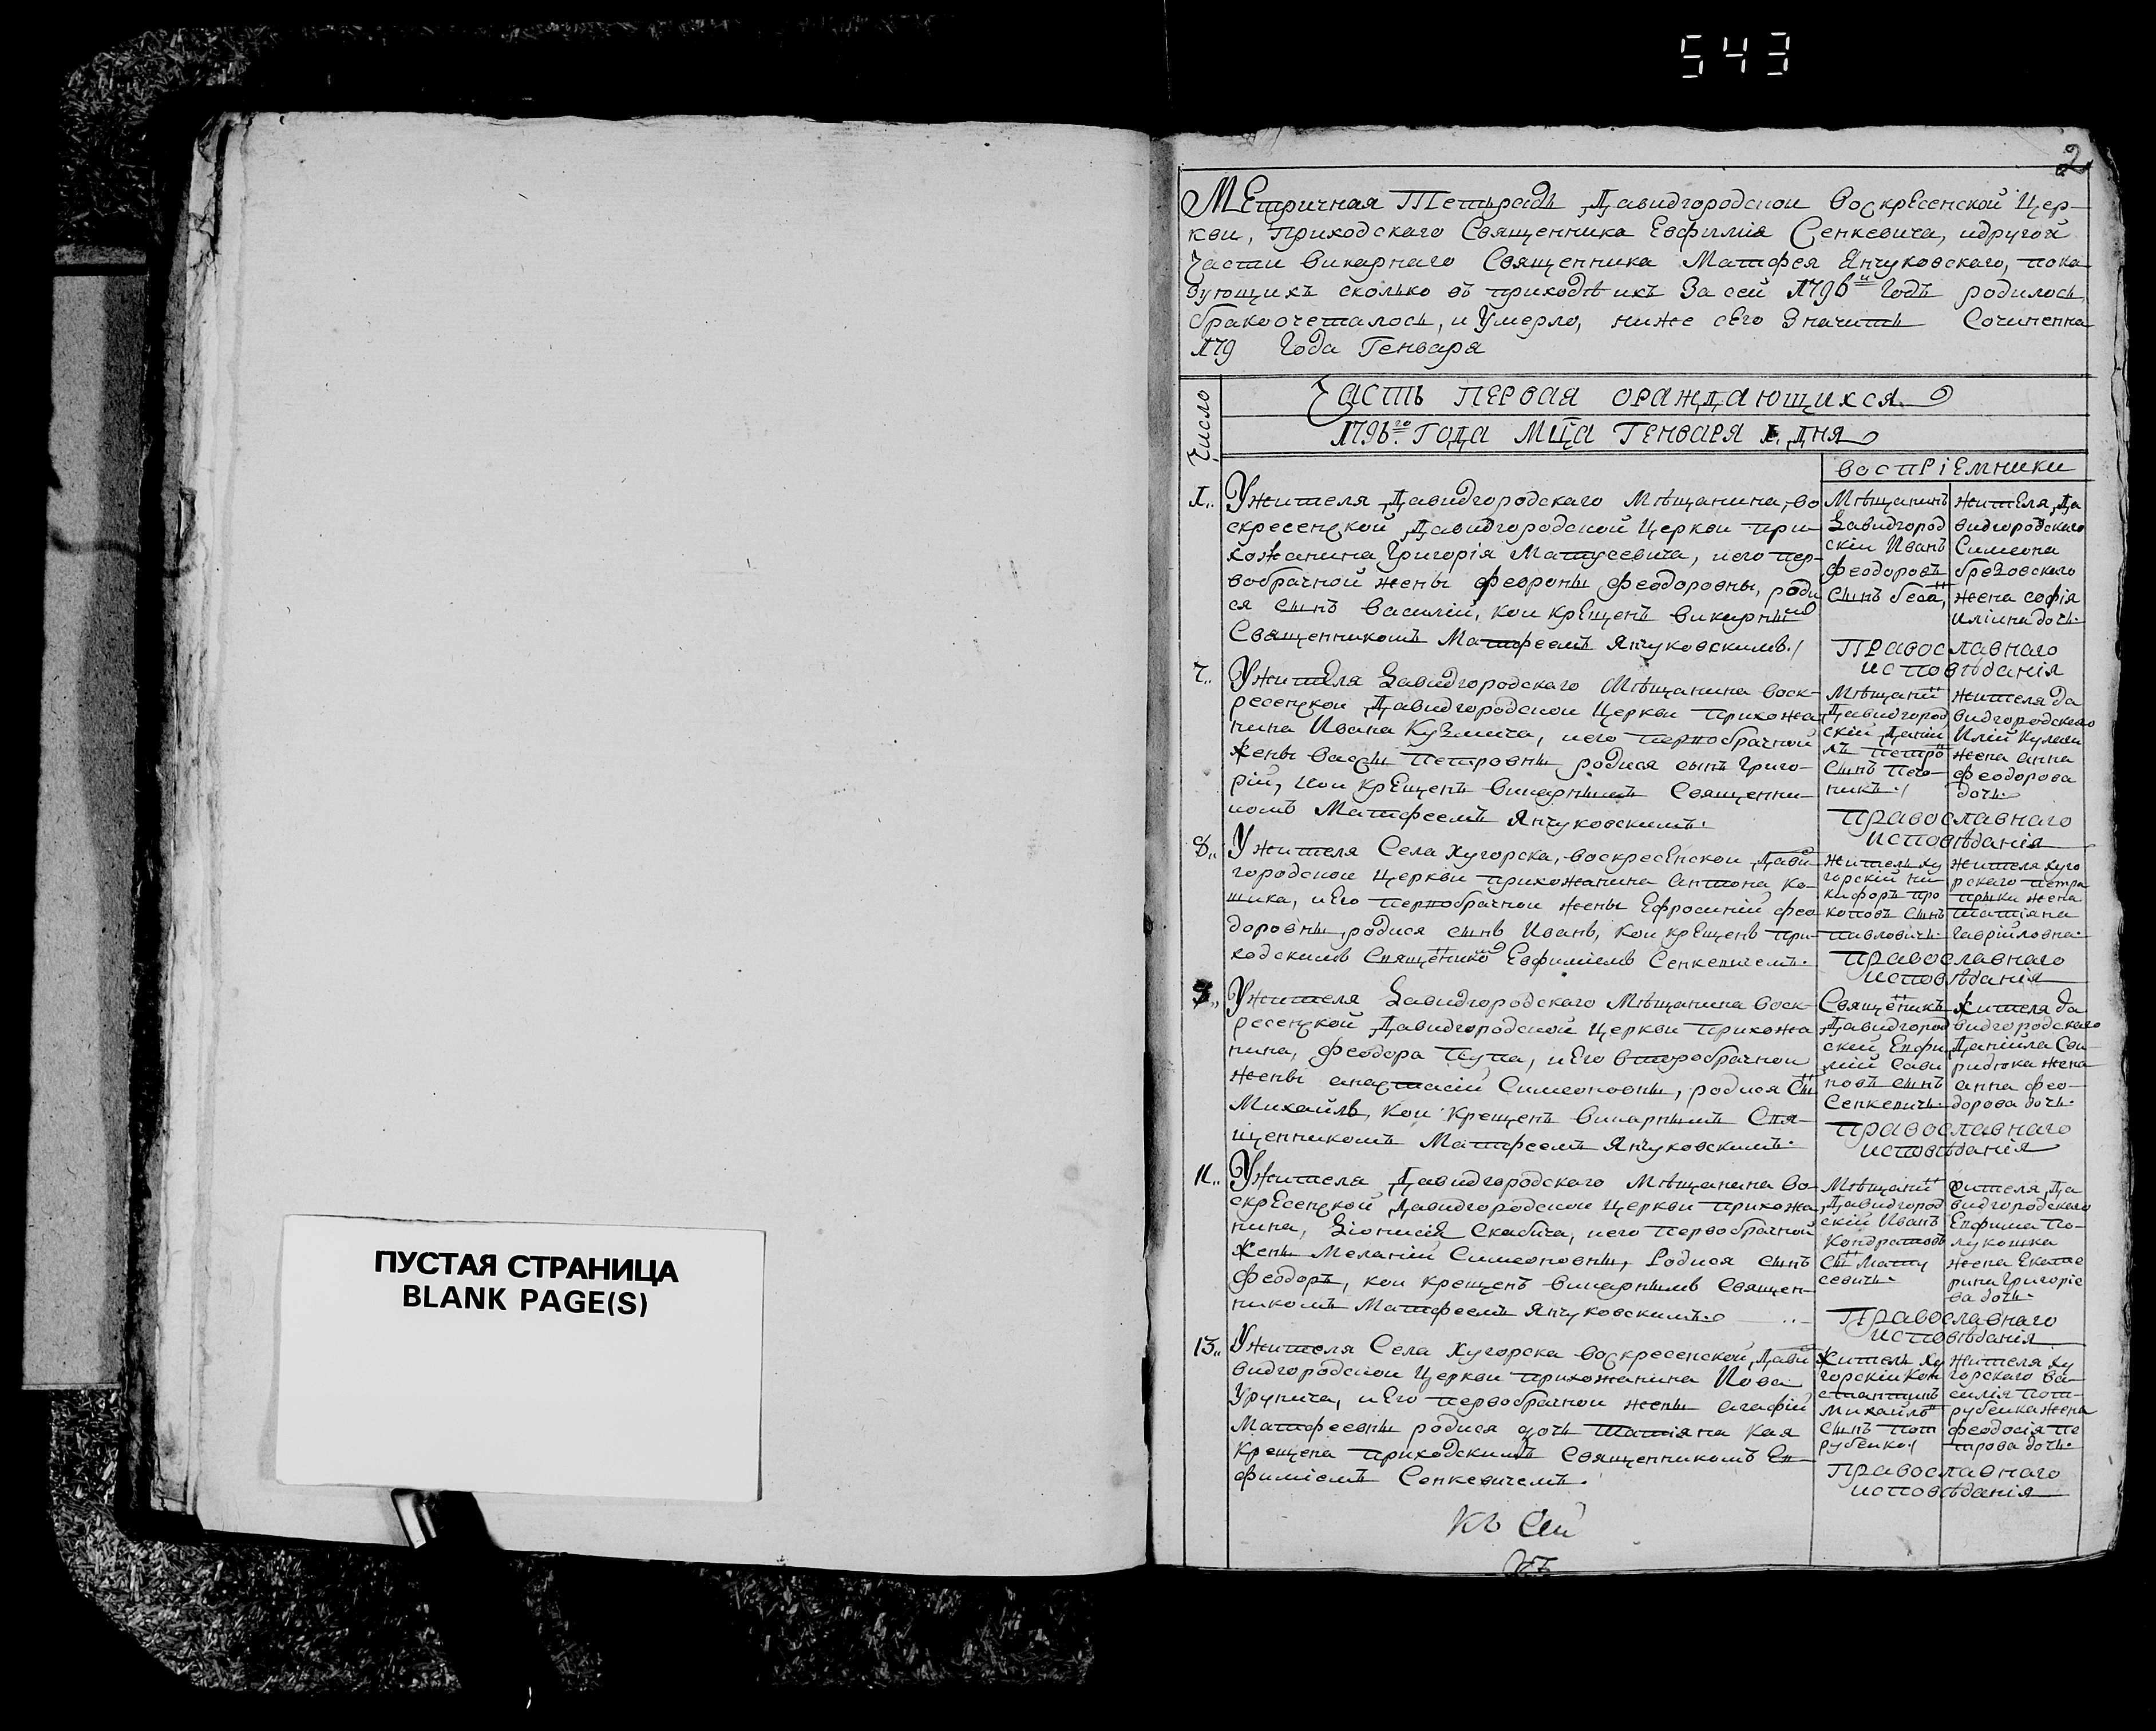 543
2
МЕтричная Тетрадь Давидгородской ВоскрЕсенской Цер-
кви, Приходскаго Священника Евфимія Сенкевича, идругой
Части Викарнаго Священника Матфея Янчуковскаго, пока
зующихъ сколько въ приходѣ ихъ За сей 1796й Годъ родилось
бракоочеталось, и Умерло, ниже сЕго Значитъ Сочиненна
179 Года Генваря
Число
Часть ПЕРвая ораждающихся
1796го Года Мца Генваря 1 дня
воспРіЕмники
1.. Ужителя Давидгородскаго Мѣщанина, во
скресенской Давидгородской Церкви при-
хожанина Григорія Матусевича, иего пер-
вобрачной жены Февроны Феодоровны, роди
ся сынъ Василій, кои крЕщенъ Викарны
Священникомъ Матфеемъ Янчуковскимъ./
Мѣщанинъ
Давидгород
скіи Иванъ
Феодоровъ
сынъ беса,
житЕля Да
видгородскаго
Симеона
брезовскаго
жена софія
иліина дочь.
Православнаго
исповѣданія
7.. Ужителя Давидгородскаго Мѣщанина Воск-
ресенской Давидгородской Церкви прихожа
нина Ивана Кузмича, иего первобрачной
жены Вассы Петровны родися сынъ Григо-
рій, кои крЕщенъ Викарнымъ Священни-
комъ Матфеемъ Янчуковскимъ.
Мѣщани
Давидгород
скій Даніи
лъ петро
сынъ Пего-
никъ./
жителя Да
видгородскаго
Иліи Кулеши
жена анна
феодорова
дочь.
Православнаго
исповѣданія
8.. Ужителя Села Хугорска, воскресЕнской Дави
городской Церкви прихожанина антона Ко-
шика, иЕго первобрачной жены Ефросиніи фео
доровны, родися сынъ Иванъ, кои крЕщенъ при-
ходскимъ Священико Евфиміемъ Сенкевичемъ.
житель ху
горскій ни
кифоръ про
коповъ сынъ
павловичь.
жителя хуго
рскаго петра
жена
татіяна
Гавріиловна.
Православнаго
исповѣданія
9.. Ужителя Давидгородскаго Мѣщанина Воск-
ресенской Давидгородской Церкви прихожа
нина, Феодора Пупа, иЕго второбрачной
жены анастасіи Симеоновны, родися Сы
Михаилъ, кои крещенъ викарнымъ Свя-
щенникомъ Матфеемъ Янчуковскимъ.
Свящeникъ
Давидгород
скіи Евфи
міи Сави
новъ сынъ
Сенкевичь.
жителя Да
видгородскаго
Даніила Сви
ридюка жена
анна фео-
дорова дочь.
Православнаго
исповѣданія
11.. Ужителя Давидгородскаго Мѣщанина Во-
скрЕсенской Давидгородской Церкви прихожа
нина, Діонисія Скабича, иего первобрачной
жены Меланіи Симеоновны, Родися сынъ
Феодоръ, кои крещенъ викарнымъ Священ-
никомъ Матфеемъ Янчуковскимъ.
Мѣщани
Давидгород
скій Иванъ
Кондратовъ
сы Мату
севичь.
жителя Да
видгородскаго
Евфима По-
лукошка
жена Екате
рина Григоріе
ва дочь.
Православнаго
исповѣданія
13.. Ужителя Села Хугорска воскресенской Дави
видгородской Церкви прихожанина Иова
Урупича, иЕго первобрачной жены агафіи
Матфеевны родися дочь татіяна Кая
Крещена приходскимъ Священникомъ Ев-
фиміемъ Сенкевичемъ.
житель Ху
горскіи Кон
стантинъ
михаилъ
сынъ пот
рубейко/
Жителя Ху
горскаго ва-
силія пот-
рубейка жена
феодосія пе
трова дочь.
Православнаго
исповѣданія
Къ Сей
ПУСТАЯ СТРАНИЦА
BLANK PAGE(S)